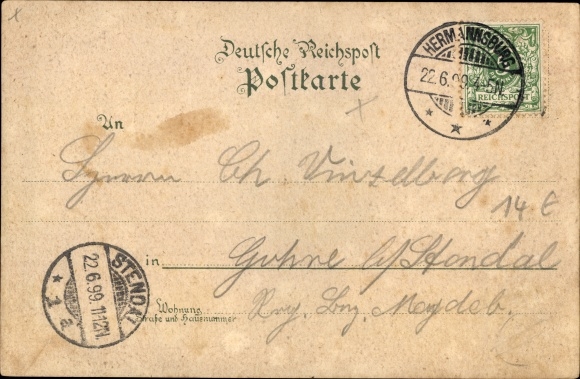 Deutsche Reichspost
Postkarte
HERMANNSBURG
22.6.99. 4-5N.
REICHSPOST
An
Herrn Ch Vinzelberg
14 €
in Gohre b/Stendal
Wohnung
(Straße und Hausnummer)
Magdeb.
STENDAL
22.6.99. 11-12N.
1 a